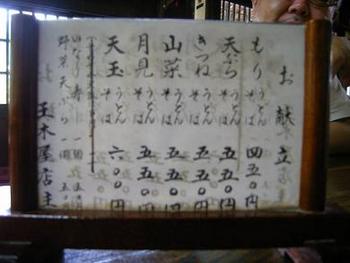 お献立
もり うどん そば 四五〇円
天ぷら うどん そば 五五〇円
きつね うどん そば 五五〇円
山菜 うどん そば 五五〇円
月見 うどん そば 五五〇円
天玉 うどん そば 六〇〇円
いなり寿し 一個
野菜天ぷら 一個 五〇
玉木屋店主